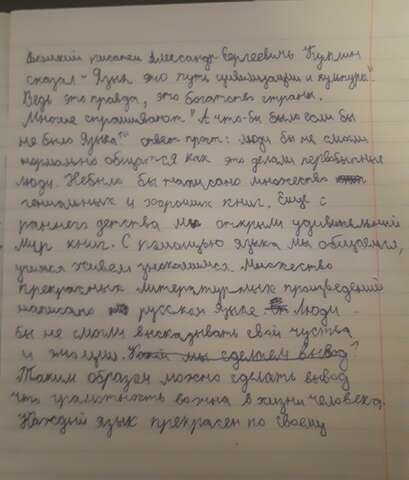 Великий писатель Александр Сергеевичь Куплин
сказал - Язык это путь цивилизации и культуры".
Ведь это правда, это богатство страны.
Многие спрашивают "А что-бы было если бы
не было Языка?" ответ прост: люди бы не смогли
нормально общатся как это делали первобытные
люди. Небыло бы написано множество
гениальных и хороших книг. Еще с
раннего детства мы открыли удивительный
мир книг. С помощью языка мы общаемся,
учимся живем знакомимся. Множество
прекрасных литературных произведений
написано русском языке Люди
бы не смогли высказывать свои чуства
и эмоции. Какой мы сделаем вывод?
Таким образом можно сделать вывод
что грамотность важна в жизни человека.
Каждый язык прекрасен по своему